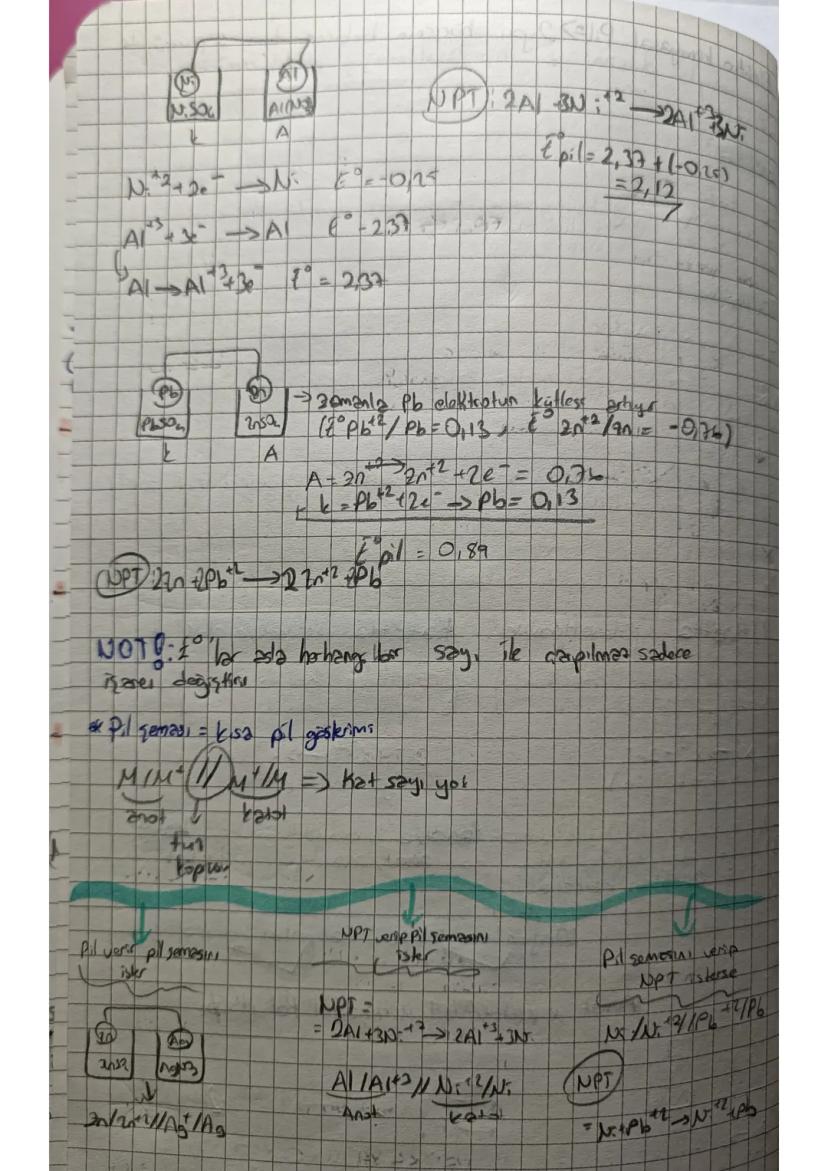 Ni
Al
NiSO4
Al(NO3)
k
A
NPT: 2Al + 3Ni+2 → 2Al+3 + 3Ni
E°pil = 2,37 + (-0,25)
= 2,12
Ni+2 + 2e- → Ni E° = -0,25
Al+3 + 3e- → Al E° -2,37
Al → Al+3 + 3e- E° = 2,37
Pb
Zn
PbSO4
ZnSO4
k
A
→ zamanla Pb elektrotun kütlesi artıyor
(E° Pb+2/Pb = 0,13, E° Zn+2/Zn = -0,76)
A = Zn → Zn+2 + 2e- = 0,76
k = Pb+2 + 2e- → Pb = 0,13
E°pil = 0,89
NPT 2Zn + 2Pb+2 → 2Zn+2 + 2Pb
NOT!: E°'lar asla herhangi bir sayı ile çarpılmaz sadece
işaret değiştirir
* Pil şeması = kısa pil gösterimi
M/M+ // M+/M => Kat sayı yok
anot
katot
tuz
köprüsü
Pil verip pil şemasını
ister
NPT verip Pil şemasını
ister
Pil şemasını verip
NPT isterse
Zn
Ag
AgNO3
Zn/Zn+2//Ag+/Ag
NPT =
= 2Al + 3Ni+2 → 2Al+3 + 3Ni
Al/Al+3//Ni+2/Ni
Anot
katot
Ni/Ni+2//Pb+2/Pb
NPT
= Ni + Pb+2 → Ni+2 + Pb